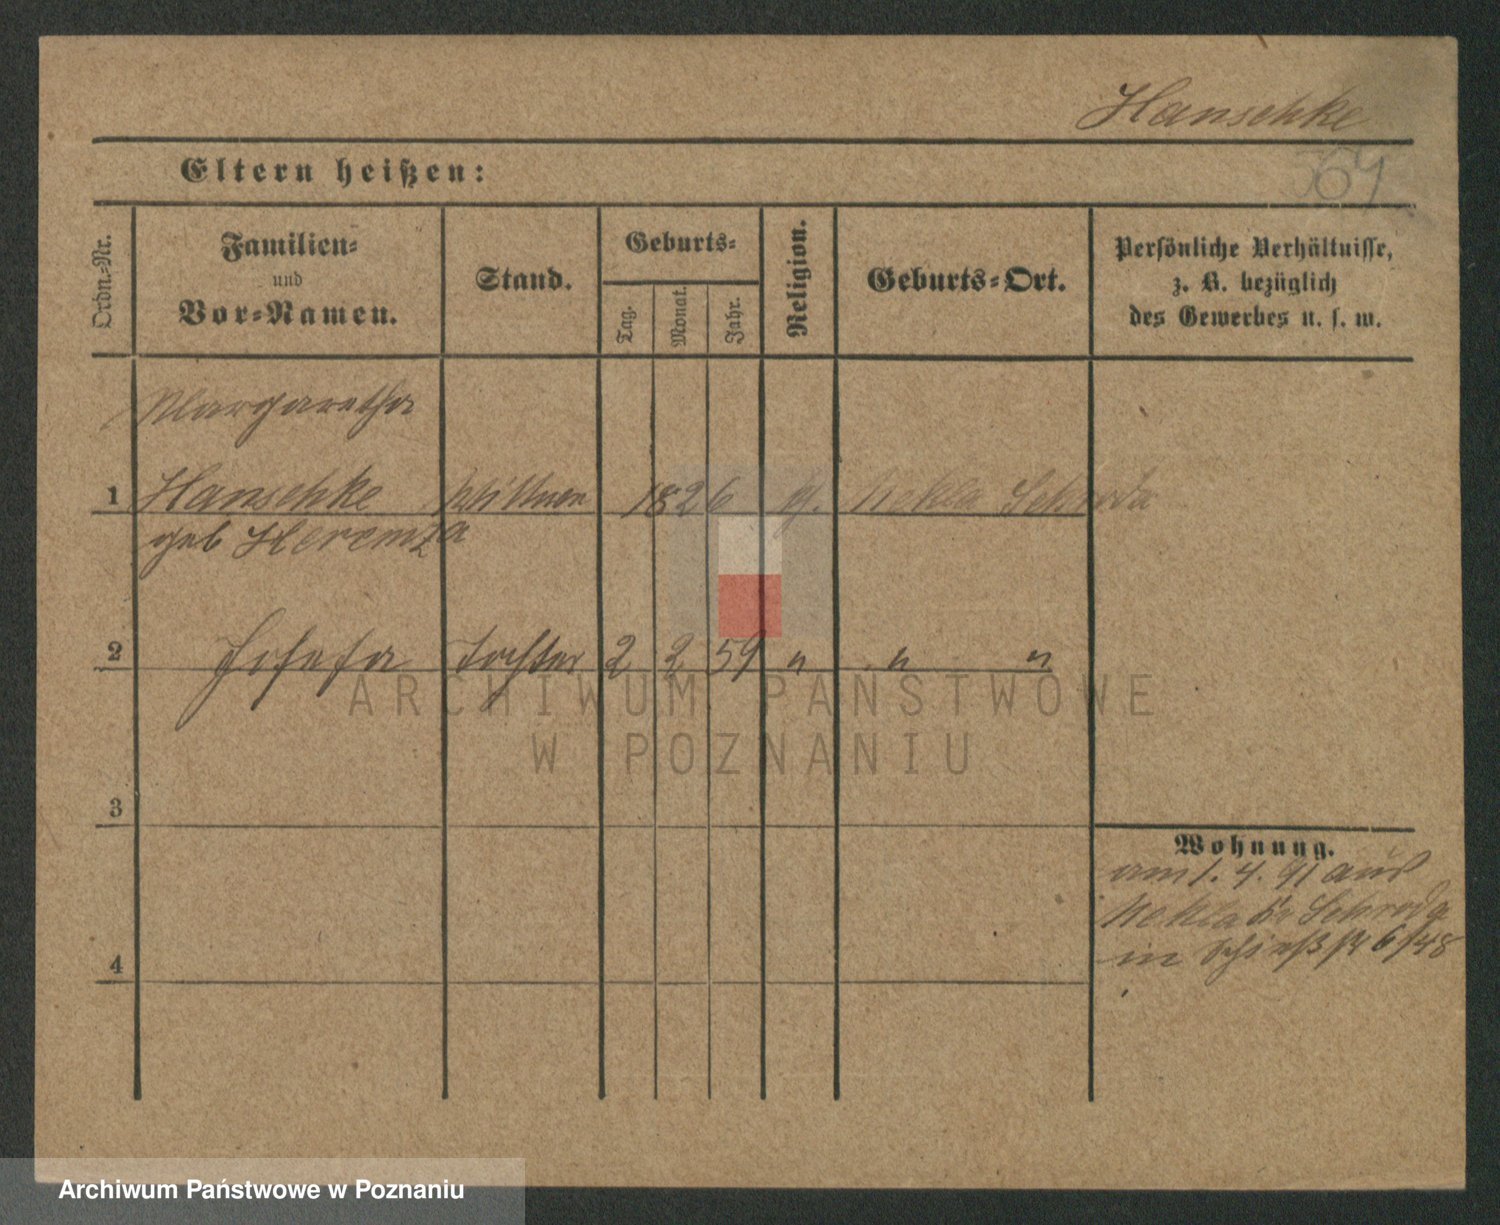 Hanschke
364
Eltern heißen:
Ordn.-Nr.
Familien-
und
Vor-Namen.
Stand.
Geburts-
Tag.
Monat.
Jahr.
Religion.
Geburts-Ort.
Persönliche Verhältnisse,
z. B. bezüglich
des Gewerbes u. s. w.
Margaretha
1 Hanschke Wittwe 1826 Nekla Schroda
geb
2 Josefa Tochter 2 2 59 " " "
ARCHIWUM PAŃSTWOWE
W POZNANIU
3
Wohnung.
am 1. 4. 91 aus
Nekla Kr Schroda
in Schießstr 6/48
4
Archiwum Państwowe w Poznaniu